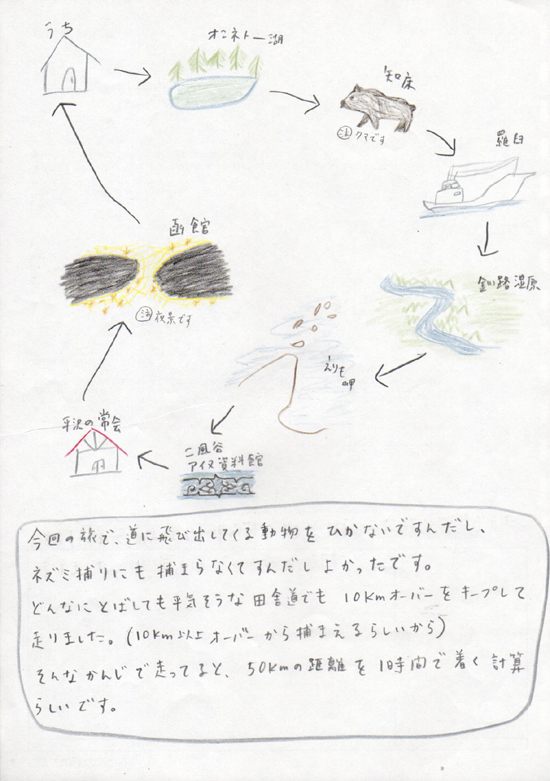 うち
オンネトー湖
知床
注 クマです
羅臼
釧路湿原
えりも
岬
二風谷
アイヌ資料館
平沢の常会
函館
注 夜景です
今回の旅で、道に飛び出してくる動物をひかないですんだし、
ネズミ捕りにも捕まらなくてすんだしよかったです。
どんなにとばしても平気そうな田舎道でも10Kmオーバーをキープして
走りました。(10Km以上オーバーから捕まえるらしいから)
そんなかんじで走ってると、50Kmの距離を1時間で着く計算
らしいです。